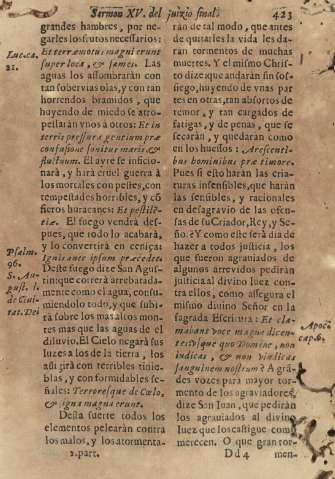 Sermon XV. del juizio final.
423
grandes hambres, por ne-
garles los frutos necessarios:
Et terræmotus magni erunt
super loca, & fames. Las
aguas los assombrarán con
tan sobervias olas, y con tan
horrendos bramidos, que
huyendo de miedo se atro-
pellarán vnos à otros: Et in
terris pressura gentium præ
confusione sonitus maris &
fluctuum. El ayre se inficio-
nará, y hará cruel guerra à
los mortales con pestes, con
tempestades horribles, y cõ
fieros huracanes: Et pestilẽ-
tiæ. El fuego vendrá des-
pues, que todo lo acabará,
y lo convertirá en ceniza:
Ignis ante ipsum præcedet.
Deste fuego dize San Agus-
tin que correrà arrebatada-
mente como el agua, consu-
miendolo todo, y que subi-
rà sobre los mas altos mon-
tes mas que las aguas de el
diluvio. El Cielo negará sus
luzes a los de la tierra, los
assigirá con terribles tinie-
blas, y con formidables se-
ñales: Terroresque de Cœlo,
& signa magna erunt.
Desta suerte todos los
elementos pelearán contra
los malos, y los atormenta-
2. part.
Luc. ca.
21.
Psalm.
96.
S. Au-
gust. l.
de Ciui-
tat. Dei
ran de tal modo, que antes
de quitarles la vida les da-
ràn tormentos de muchas
muertes. Y el mismo Chris-
to dize que andarán sin sos-
siego, huyendo de vnas par
tes en otras, tan absortos de
temor, y tan cargados de
fatigas, y de penas, que se
secarán, y quedarán como
en los huessos: Arescenti-
bus hominibus præ timore.
Pues si esto harán las cria-
turas insensibles, que harán
las sensibles, y racionales
en desagravio de las ofen-
sas de su Criador, Rey, y Se-
ño. è Y como este será dia de
hazer a todos justicia, los
que fueron agraviados de
algunos arrevidos pedirán
justicia al divino luez con-
tra ellos, como assegura el
mismo divino Señor en la
sagrada Escritura: Et cla-
mabant voce magna dicen-
tes: Vsquequo Domine, non
iudicas, & non vindicas
sanguinem nostrum? A grã-
des vozes para mayor tor-
mento de los agraviadores,
dize San Juan, que pedirán
los agraviados al divino
luez que los castigue como
merecen. O que gran tor-
Dd 4 men-
Apoc.
cap. 6.